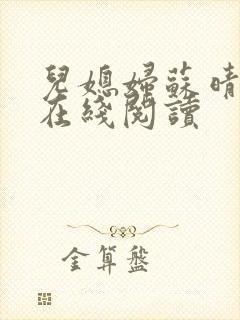 兒媳婦蘇晴
在綫閱讀
金算盤